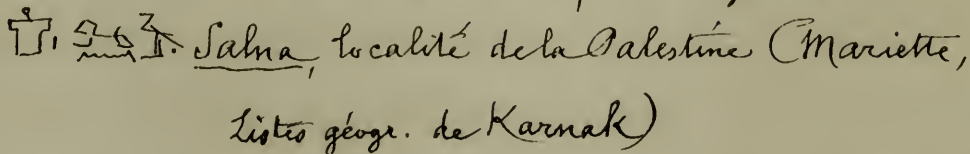 Salma, localité de la Palestine (Mariette,
Listes géogr. de Karnak)